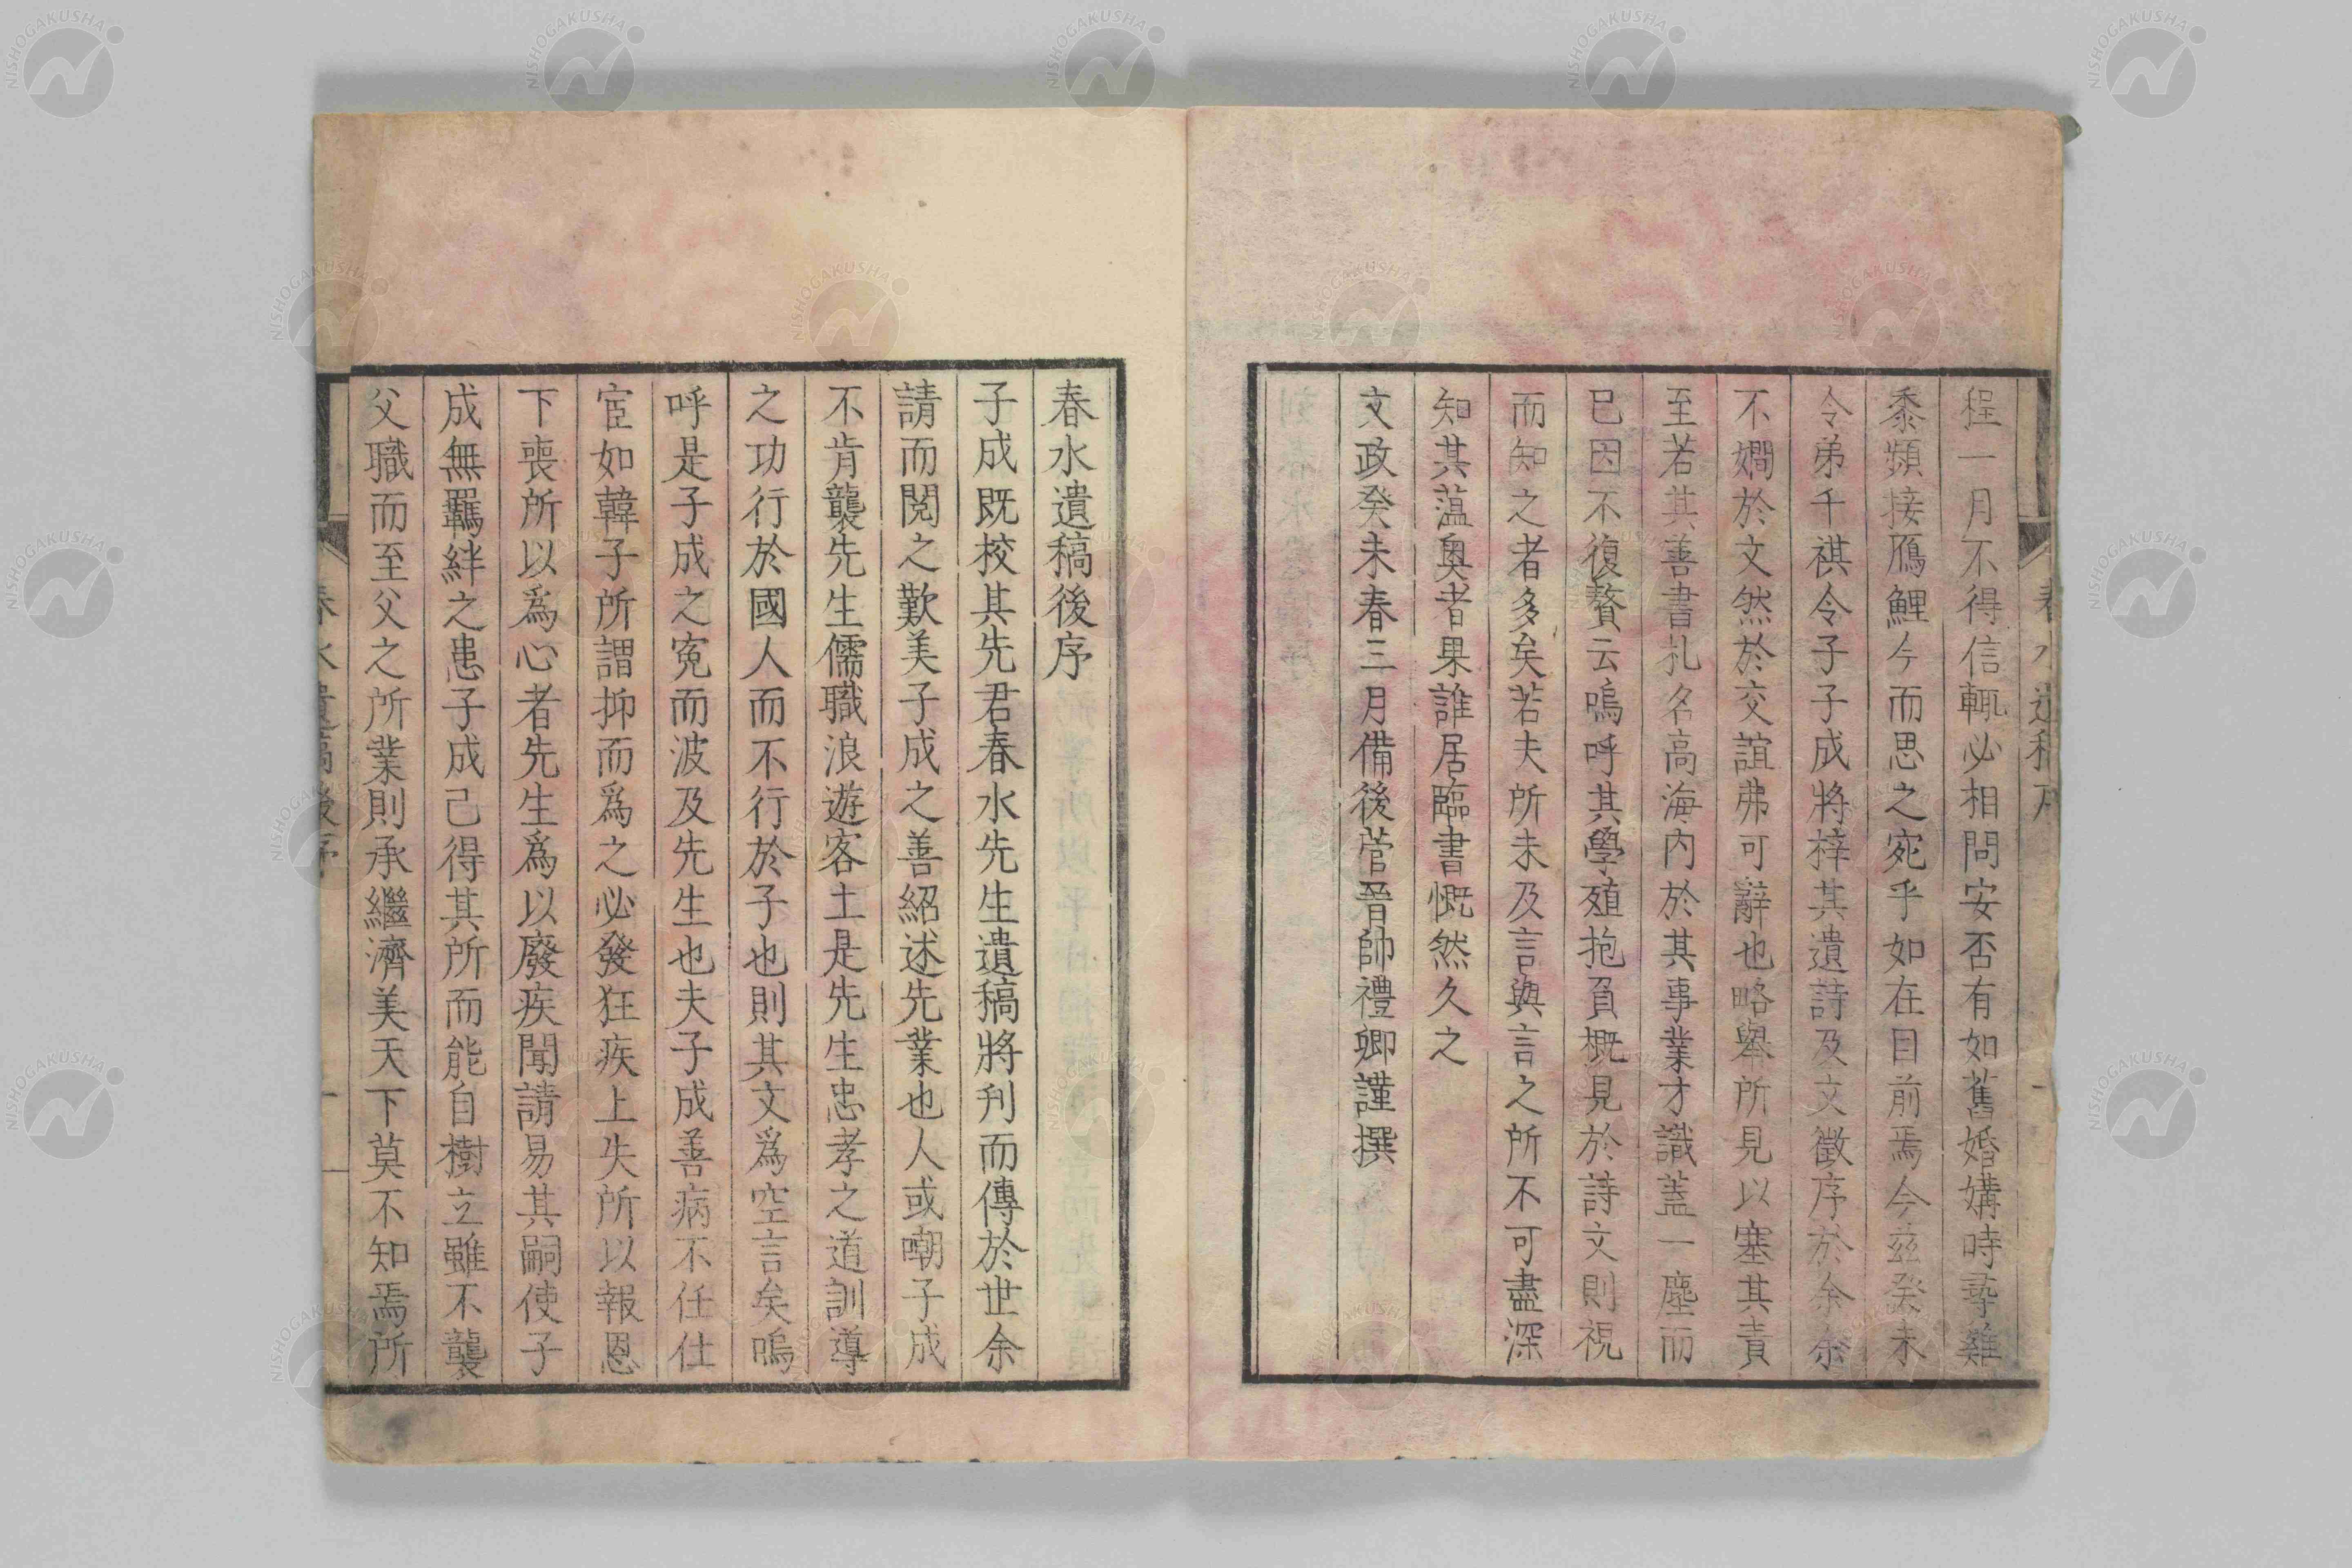 程一月不得信輒必相問安否有如舊婚媾時尋雞
黍頻接鴈鯉今而思之宛乎如在目前焉今茲癸未
令弟千祺令子子成將梓其遺詩及文徵序於余余
不嫺於文然於交誼弗可辭也略舉所見以塞其責
至若其善書札名高海內於其事業才識蓋一塵而
已因不復贅云嗚呼其學殖抱負概見於詩文則視
而知之者多矣若夫所未及言與言之所不可盡深
知其薀奧者果誰居臨書慨然久之
文政癸未春三月備後菅晉帥禮卿謹撰
春水遺稿後序
子成既校其先君春水先生遺稿將刋而傳於世余
請而閱之歎美子成之善紹述先業也人或嘲子成
不肯襲先生儒職浪遊客土是先生忠孝之道訓導
之功行於國人而不行於子也則其文爲空言矣嗚
呼是子成之寃而波及先生也夫子成善病不任仕
宦如韓子所謂抑而爲之必發狂疾上失所以報恩
下喪所以爲心者先生爲以廢疾聞請易其嗣使子
成無羈絆之患子成己得其所而能自樹立雖不襲
父職而至父之所業則承繼濟美天下莫不知焉所
春水遺稿後序
NISHOGAKUSHA